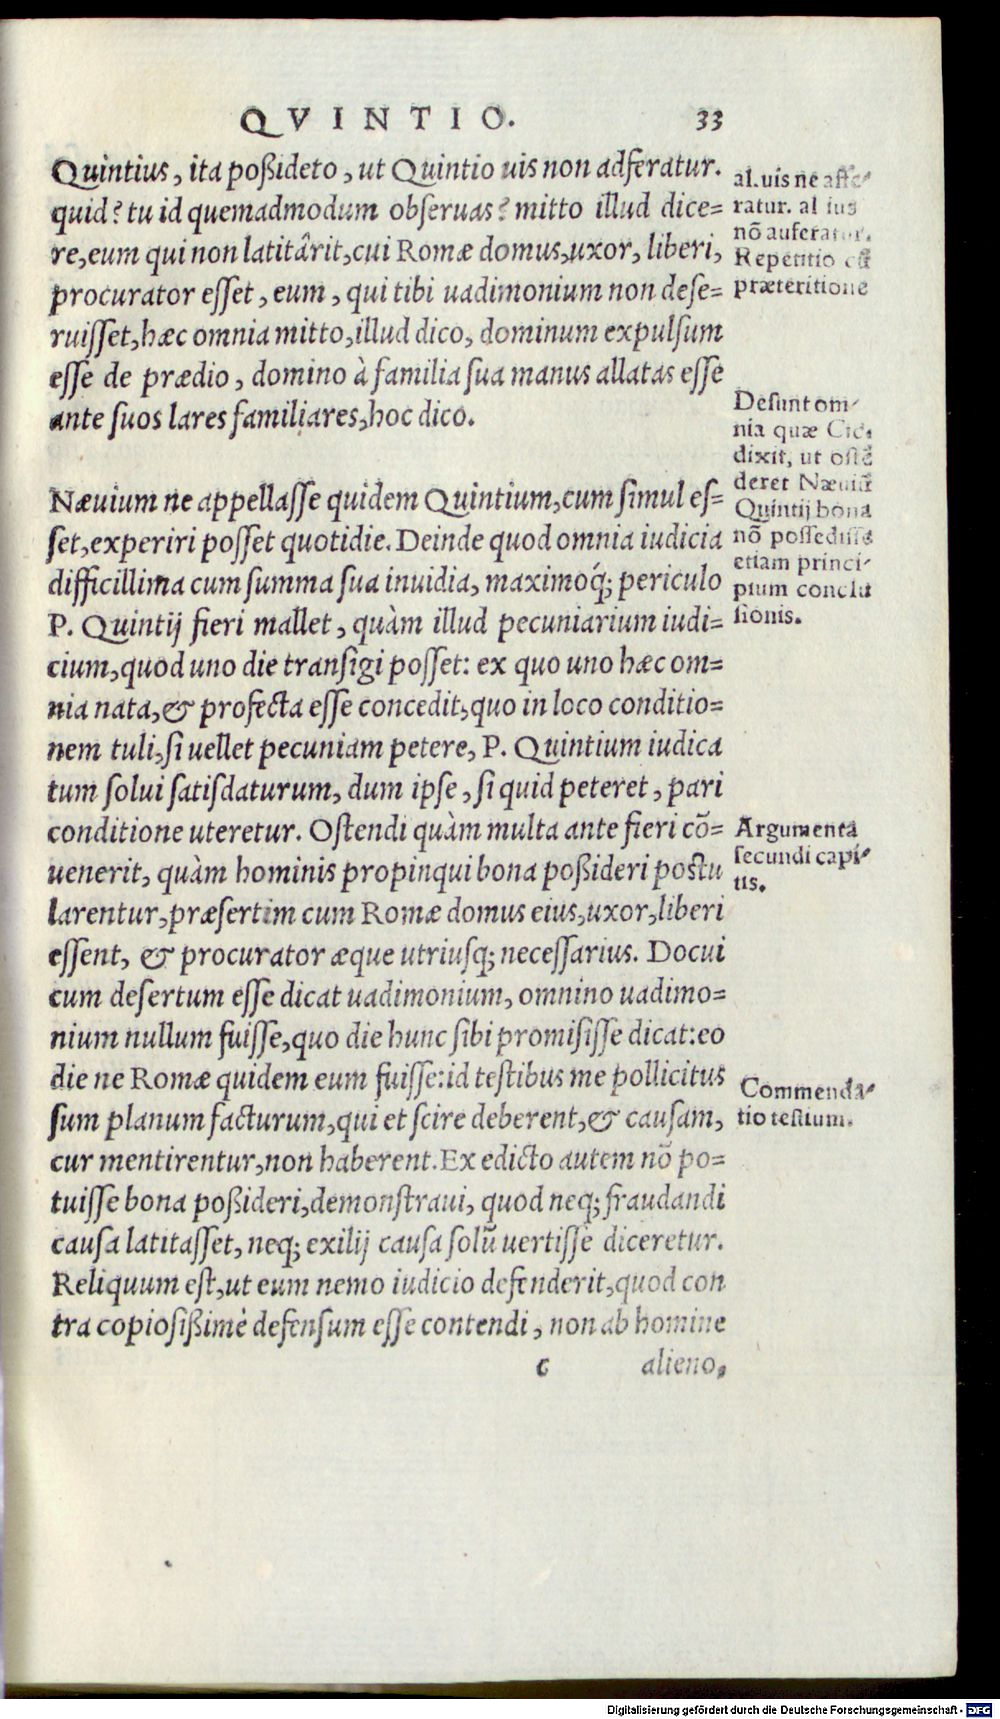 QVINTIO. 33
Quintius, ita poßideto, ut Quintio uis non adferatur.
quid? tu id quemadmodum obseruas? mitto illud dice=
re, eum qui non latitârit, cui Romæ domus, uxor, liberi,
procurator esset, eum, qui tibi uadimonium non dese=
ruisset, hæc omnia mitto, illud dico, dominum expulsum
esse de prædio, domino à familia sua manus allatas esse
ante suos lares familiares, hoc dico.
Næuium ne appellasse quidem Quintium, cum simul es=
set, experiri posset quotidie. Deinde quod omnia iudicia
difficillima cum summa sua inuidia, maximoq́; periculo
P. Quintij fieri mallet, quàm illud pecuniarium iudi=
cium, quod uno die transigi posset: ex quo uno hæc om=
nia nata, & profecta esse concedit, quo in loco conditio=
nem tuli, si uellet pecuniam petere, P. Quintium iudica
tum solui satisdaturum, dum ipse, si quid peteret, pari
conditione uteretur. Ostendi quàm multa ante fieri cō=
uenerit, quàm hominis propinqui bona poßideri postu
larentur, præsertim cum Romæ domus eius, uxor, liberi
essent, & procurator æque utriusq; necessarius. Docui
cum desertum esse dicat uadimonium, omnino uadimo=
nium nullum fuisse, quo die hunc sibi promisisse dicat: eo
die ne Romæ quidem eum fuisse: id testibus me pollicitus
sum planum facturum, qui et scire deberent, & causam,
cur mentirentur, non haberent. Ex edicto autem nō po=
tuisse bona poßideri, demonstraui, quod neq; fraudandi
causa latitasset, neq; exilij causa solū uertisse diceretur.
Reliquum est, ut eum nemo iudicio defenderit, quod con
tra copiosißimè defensum esse contendi, non ab homine
c alieno,
al. uis ne affe-
ratur. al ius
nō auferatur.
Repetitio est
præteritione
Desunt om-
nia quæ Cic.
dixit, ut ostē
deret Næuiū
Quintij bona
nō possedisse
etiam princi-
pium conclu
sionis.
Argumenta
secundi capi-
tis.
Commenda-
tio testium.
Digitalisierung gefördert durch die Deutsche Forschungsgemeinschaft - DFG